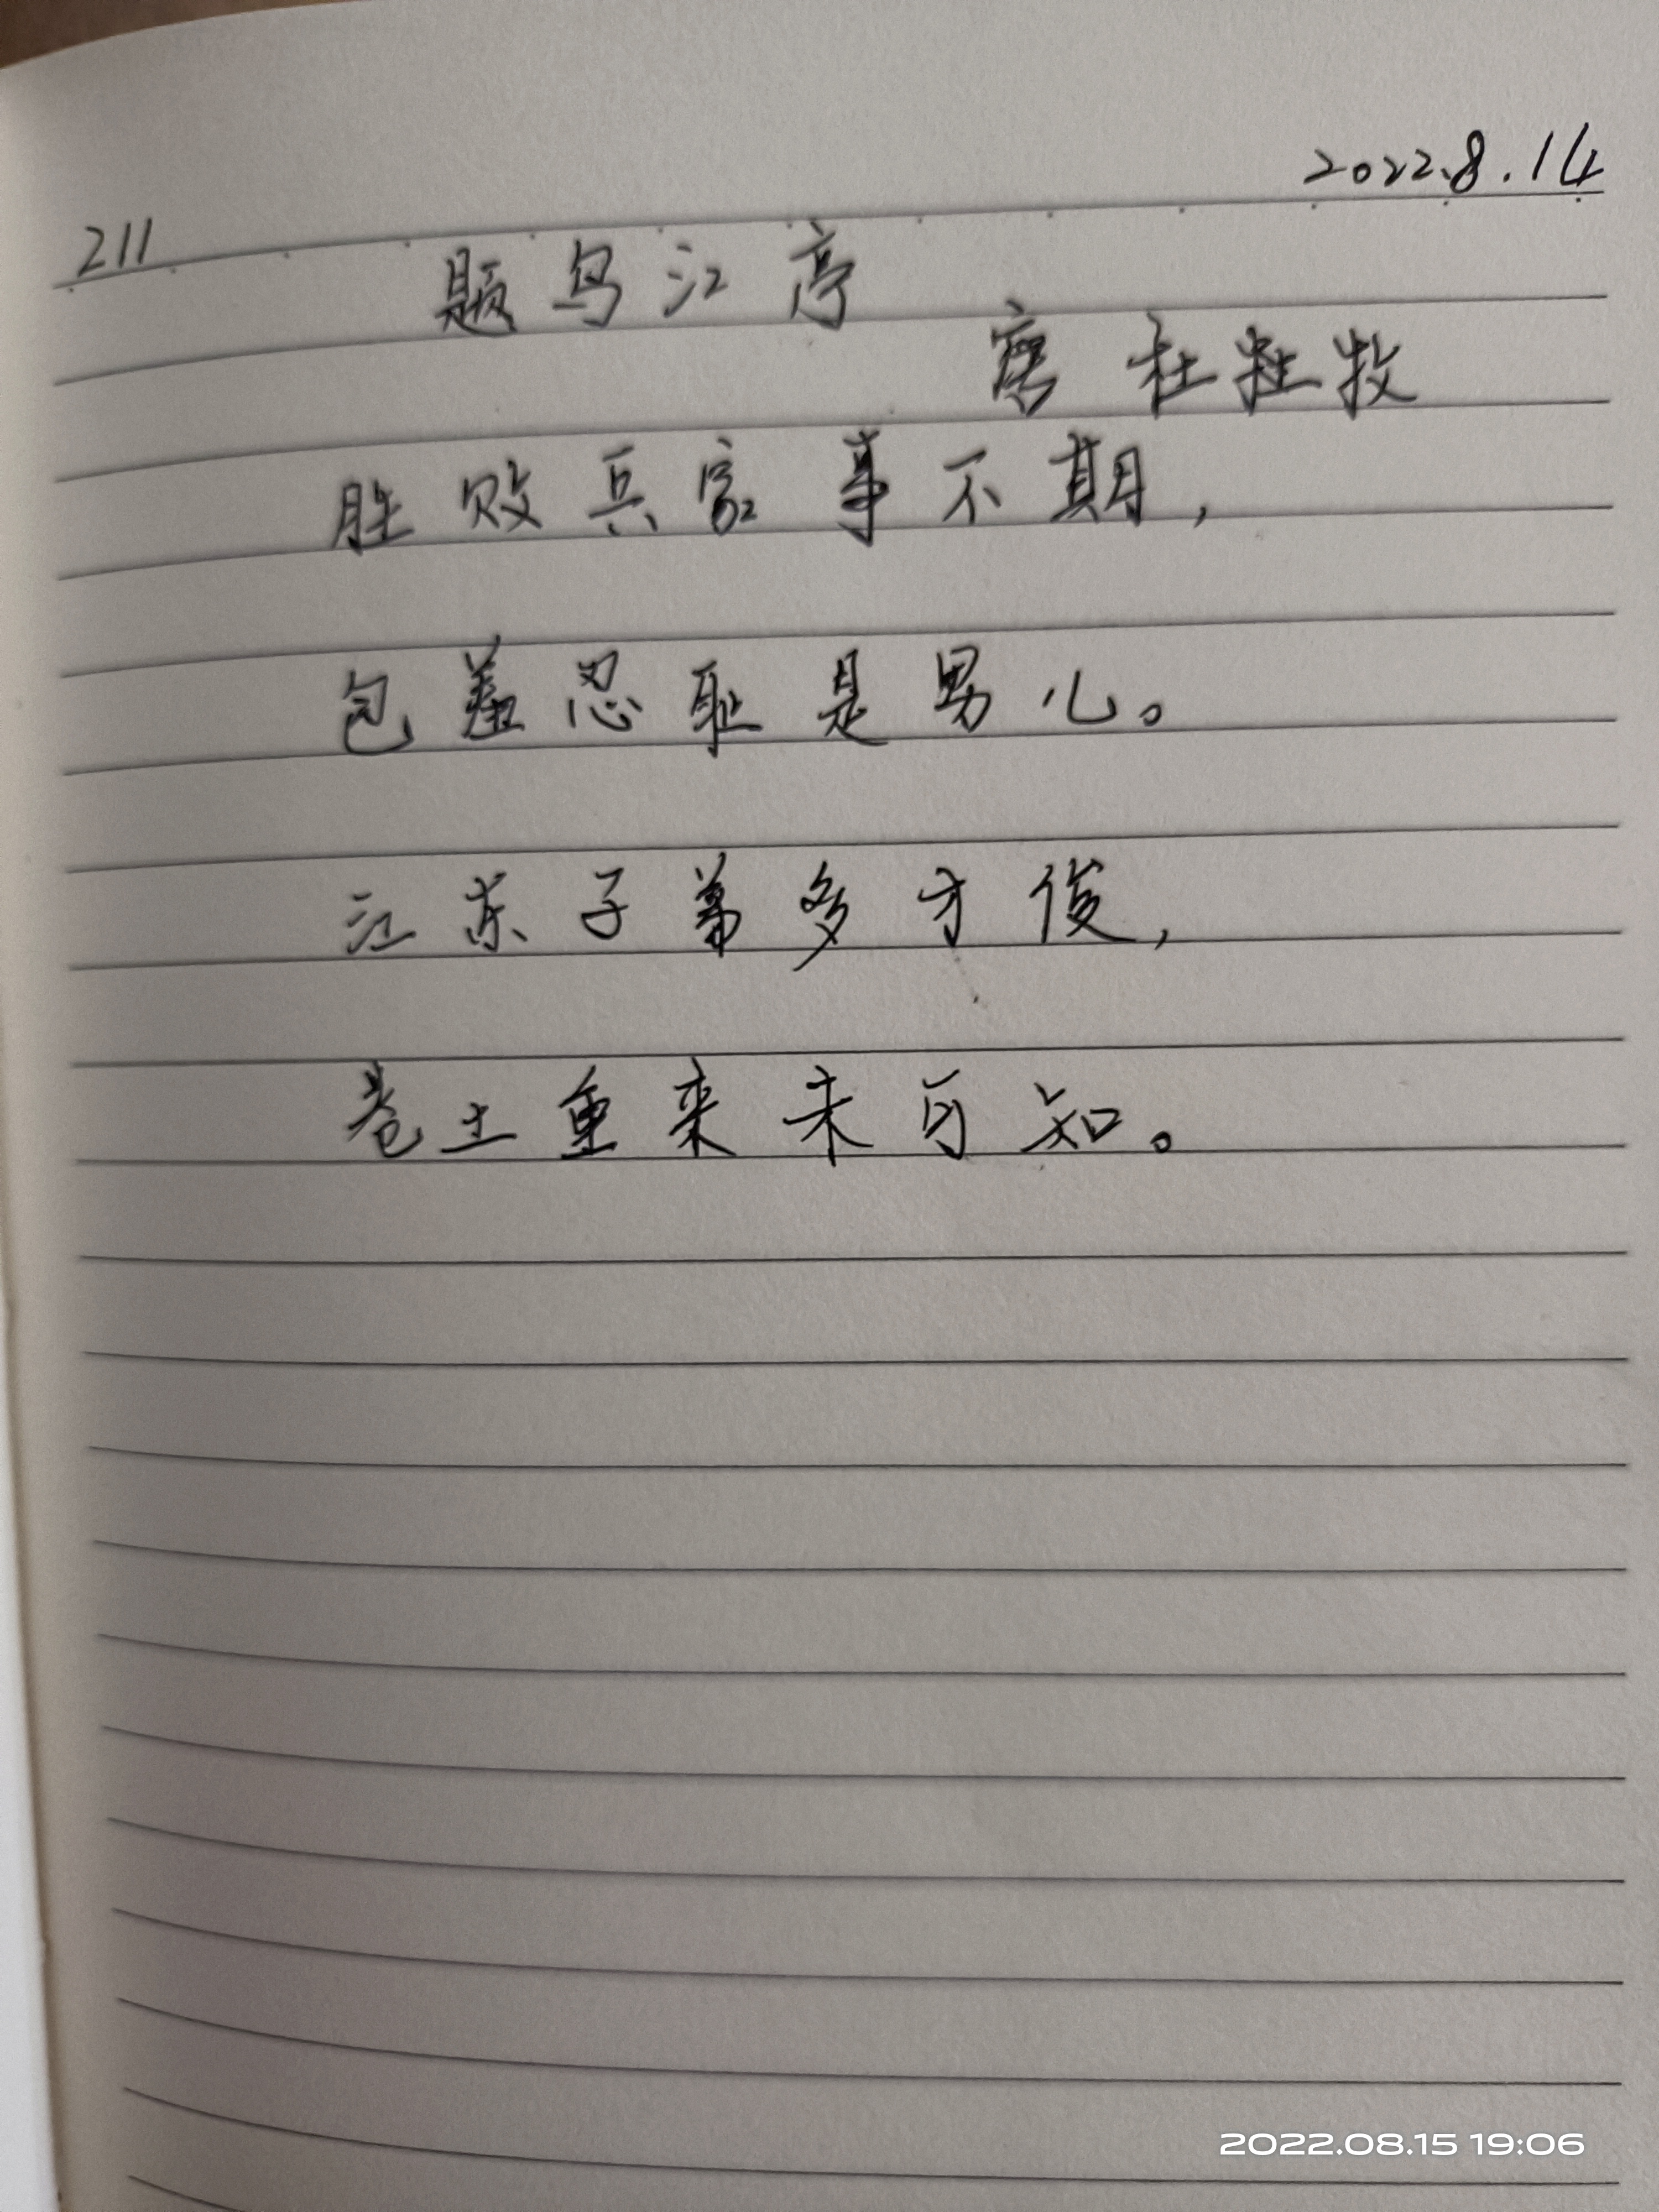 2022.8.14
211
题乌江亭
唐 杜牧
胜败兵家事不期，
包羞忍耻是男儿。
江东子弟多才俊，
卷土重来未可知。
2022.08.15 19:06